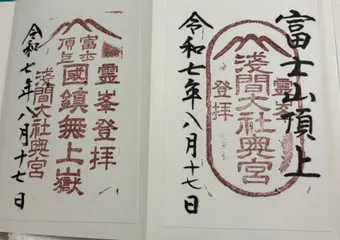 霊峯登拝
富士
頂上
國鎮無上嶽
浅間大社奥宮
令和七年八月十七日
富士山頂上
霊峯
浅間大社奥宮
登拝
令和七年八月十七日